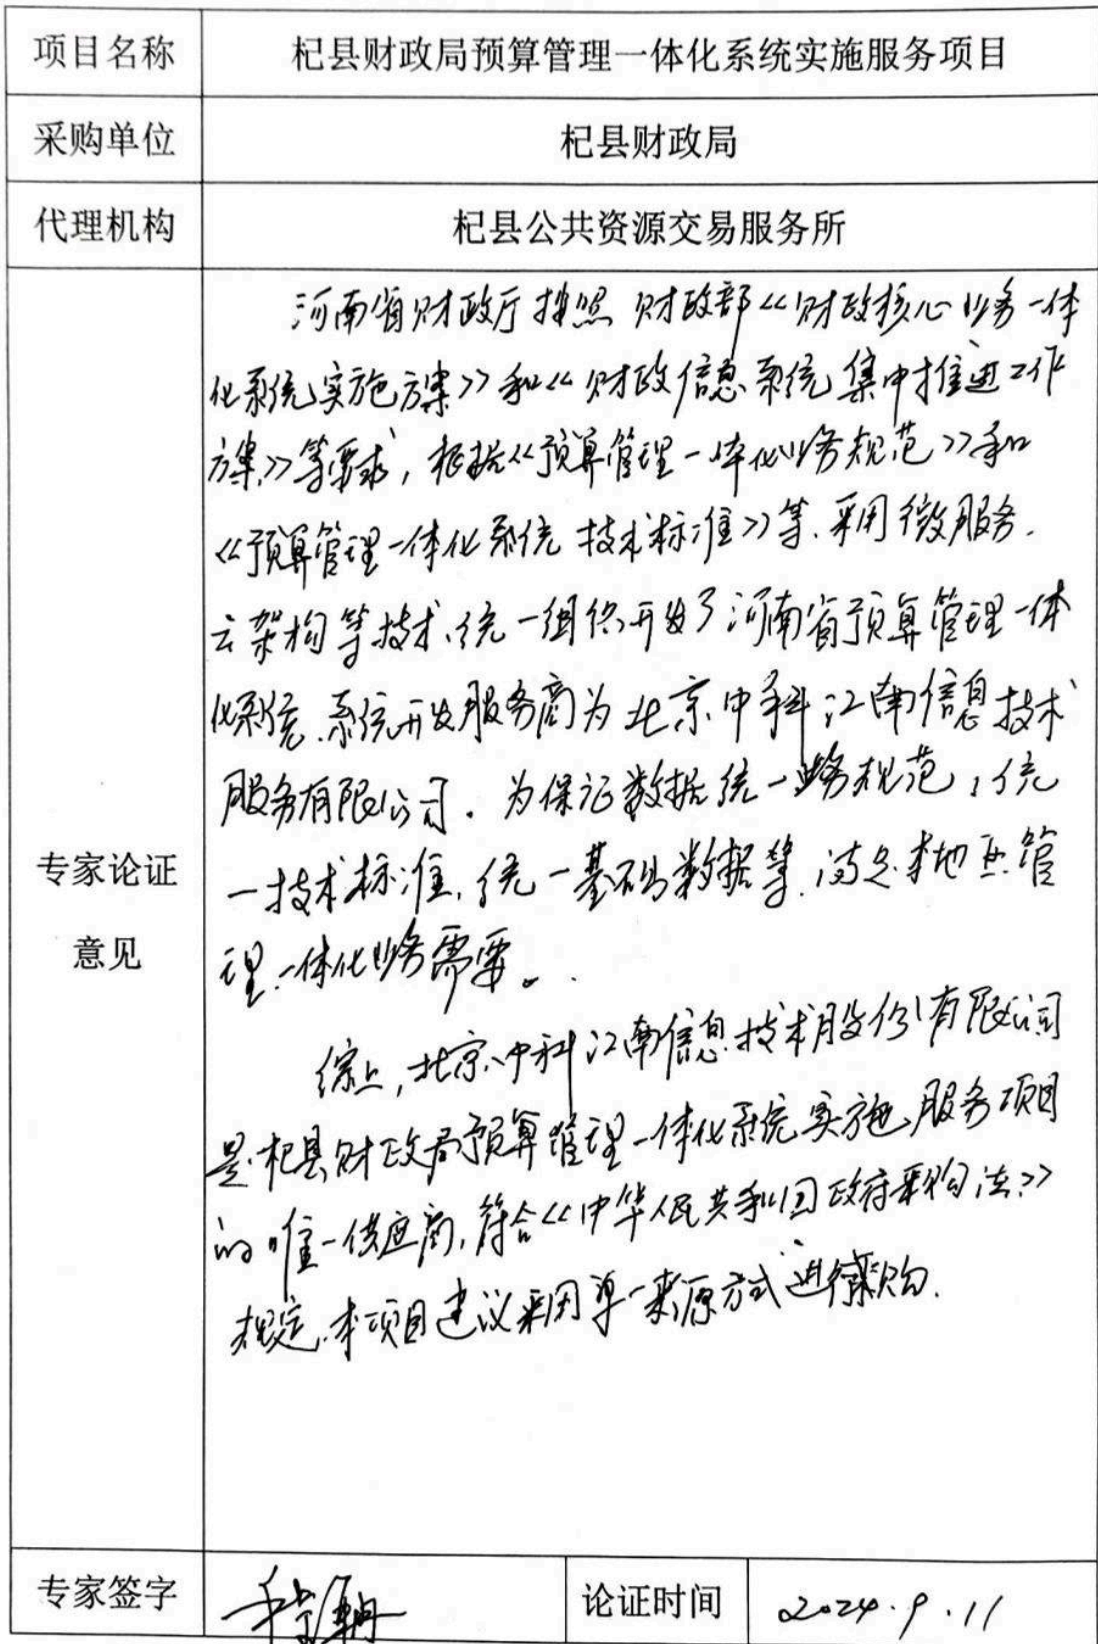 项目名称 杞县财政局预算管理一体化系统实施服务项目
采购单位 杞县财政局
代理机构 杞县公共资源交易服务所
专家论证
意见
河南省财政厅按照 财政部《财政核心业务一体
化系统实施方案》和《财政信息系统集中推进工作
方案》等要求，根据《预算管理一体化业务规范》和
《预算管理一体化系统技术标准》等.采用微服务.
云架构等技术.统一组织开发了河南省预算管理一体
化系统.系统开发服务商为北京中科江南信息技术
服务有限公司。为保证数据统一业务规范，统
一技术标准,统一基础数据等.满足本地区管
理一体化业务需要。
综上,北京中科江南信息技术股份有限公司
是杞县财政局预算管理一体化系统实施服务项目
的唯一供应商,符合《中华人民共和国政府采购法》
规定.本项目建议采用单一来源方式进行采购.
专家签字 论证时间 2024.9.11